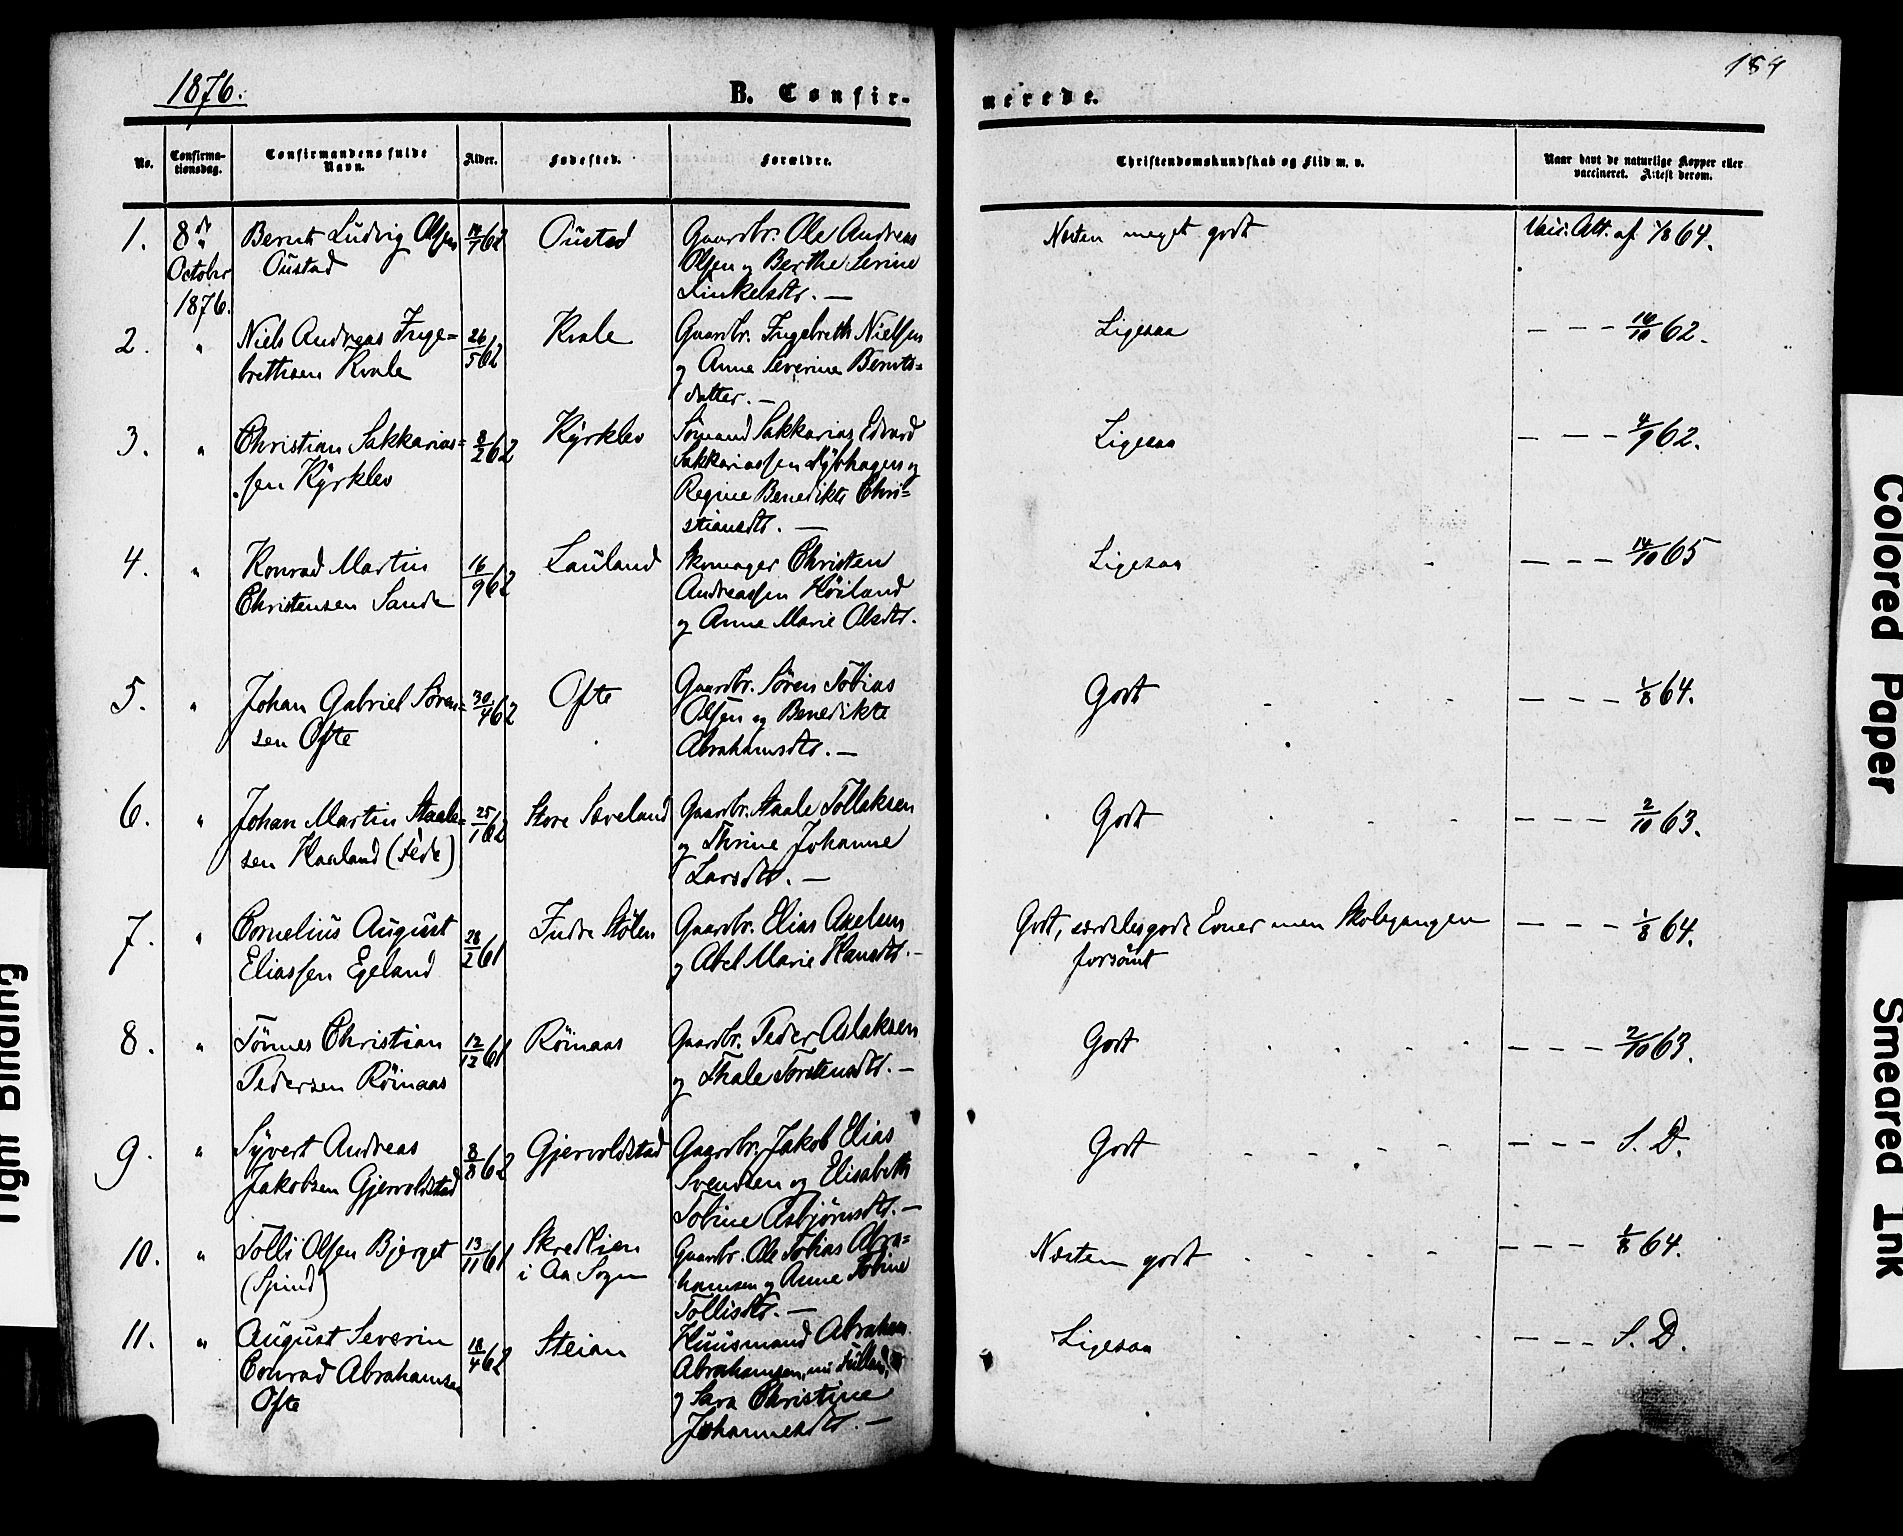 1876.
B. Confir-
merede.
184
No.
Confirma-
tionsdag.
Confirmandens fulde
Navn.
Alder.
Fødested.
Forældre.
Christendomskundskab og Flid m. v.
Naar havt de naturlige Kopper eller
vaccineret. Attest derom.
1. 8de Bernt Ludvig Olsen 62 Oustad Gaardbr. Ole Andreas Næsten meget godt Vacc. Att. af 1/8 64.
October Oustad Olsen og Berthe Serine
1876. Finkelsdtr. —
2. " Niels Andreas Inge= 26/5 62 Kvale Gaardbr. Ingebreth Nielsen Ligesaa — — — 14/10 62.
brethsen Kvale og Anne Severine Bernts=
datter. —
3. " Christian Sakkarias= 8/2 62 Kyrklev Sømand Sakkarias Edvard Ligesaa — — — 4/9 62.
sen Kyrklev Sakkariassen og
Regine Benedikte Chri=
stiansdtr. —
4. " Konrad Martin 16/9 62 Lauland Skomager Christen Ligesaa — — — 14/10 65
Christensen Sande Andreassen Høiland
og Anne Marie Olsdtr.
5. " Johan Gabriel Søren= 30/4 62 Ofte Gaardbr. Søren Tobias Godt — — — 1/8 64.
sen Ofte Olsen og Benedikte
Abrahamsdtr. —
6. " Johan Martin Staale= 25/1 62 Store Sæveland Gaardbr. Staale Tollaksen Godt — — — 2/10 63.
sen Haaland (Fede) og Thrine Johanne
Larsdtr. —
7. " Cornelius August 28/2 61 Indre Stølen Gaardbr. Elias Axelsen Godt, særdeles gode Evner men Skolegangen — — — 1/8 64.
Eliassen Egeland og Abel Marie Hansdtr. — forsømt
8. " Tønnes Christian 12/12 61 Røinaas Gaardbr. Peder Aslaksen Godt — — — 2/10 63.
Pedersen Røinaas og Thale Torstensdtr. —
9. " Syvert Andreas 8/8 62 Gjervoldstad Gaardbr. Jakob Elias Godt — — — S. D.
Jakobsen Gjervoldstad Svendsen og Elisabeth
Tobine Asbjørnsdtr. —
10. " Tolli Olsen Bjerget 13/11 61 Skredlien Gaardbr. Ole Tobias Abra= Næsten godt — — — 1/8 64.
(Spind) i Aa Sogn hamsen og Anne Tobine
Tollisdtr. —
11. " August Severin 18/4 62 Steian Huusmand Abraham Ligesaa — — — S. D.
Conrad Abrahamsen Abrahamsen,
Ofte og Sara Christine
Johannesdtr. —
Colored Paper
Smeared Ink
Tight Binding